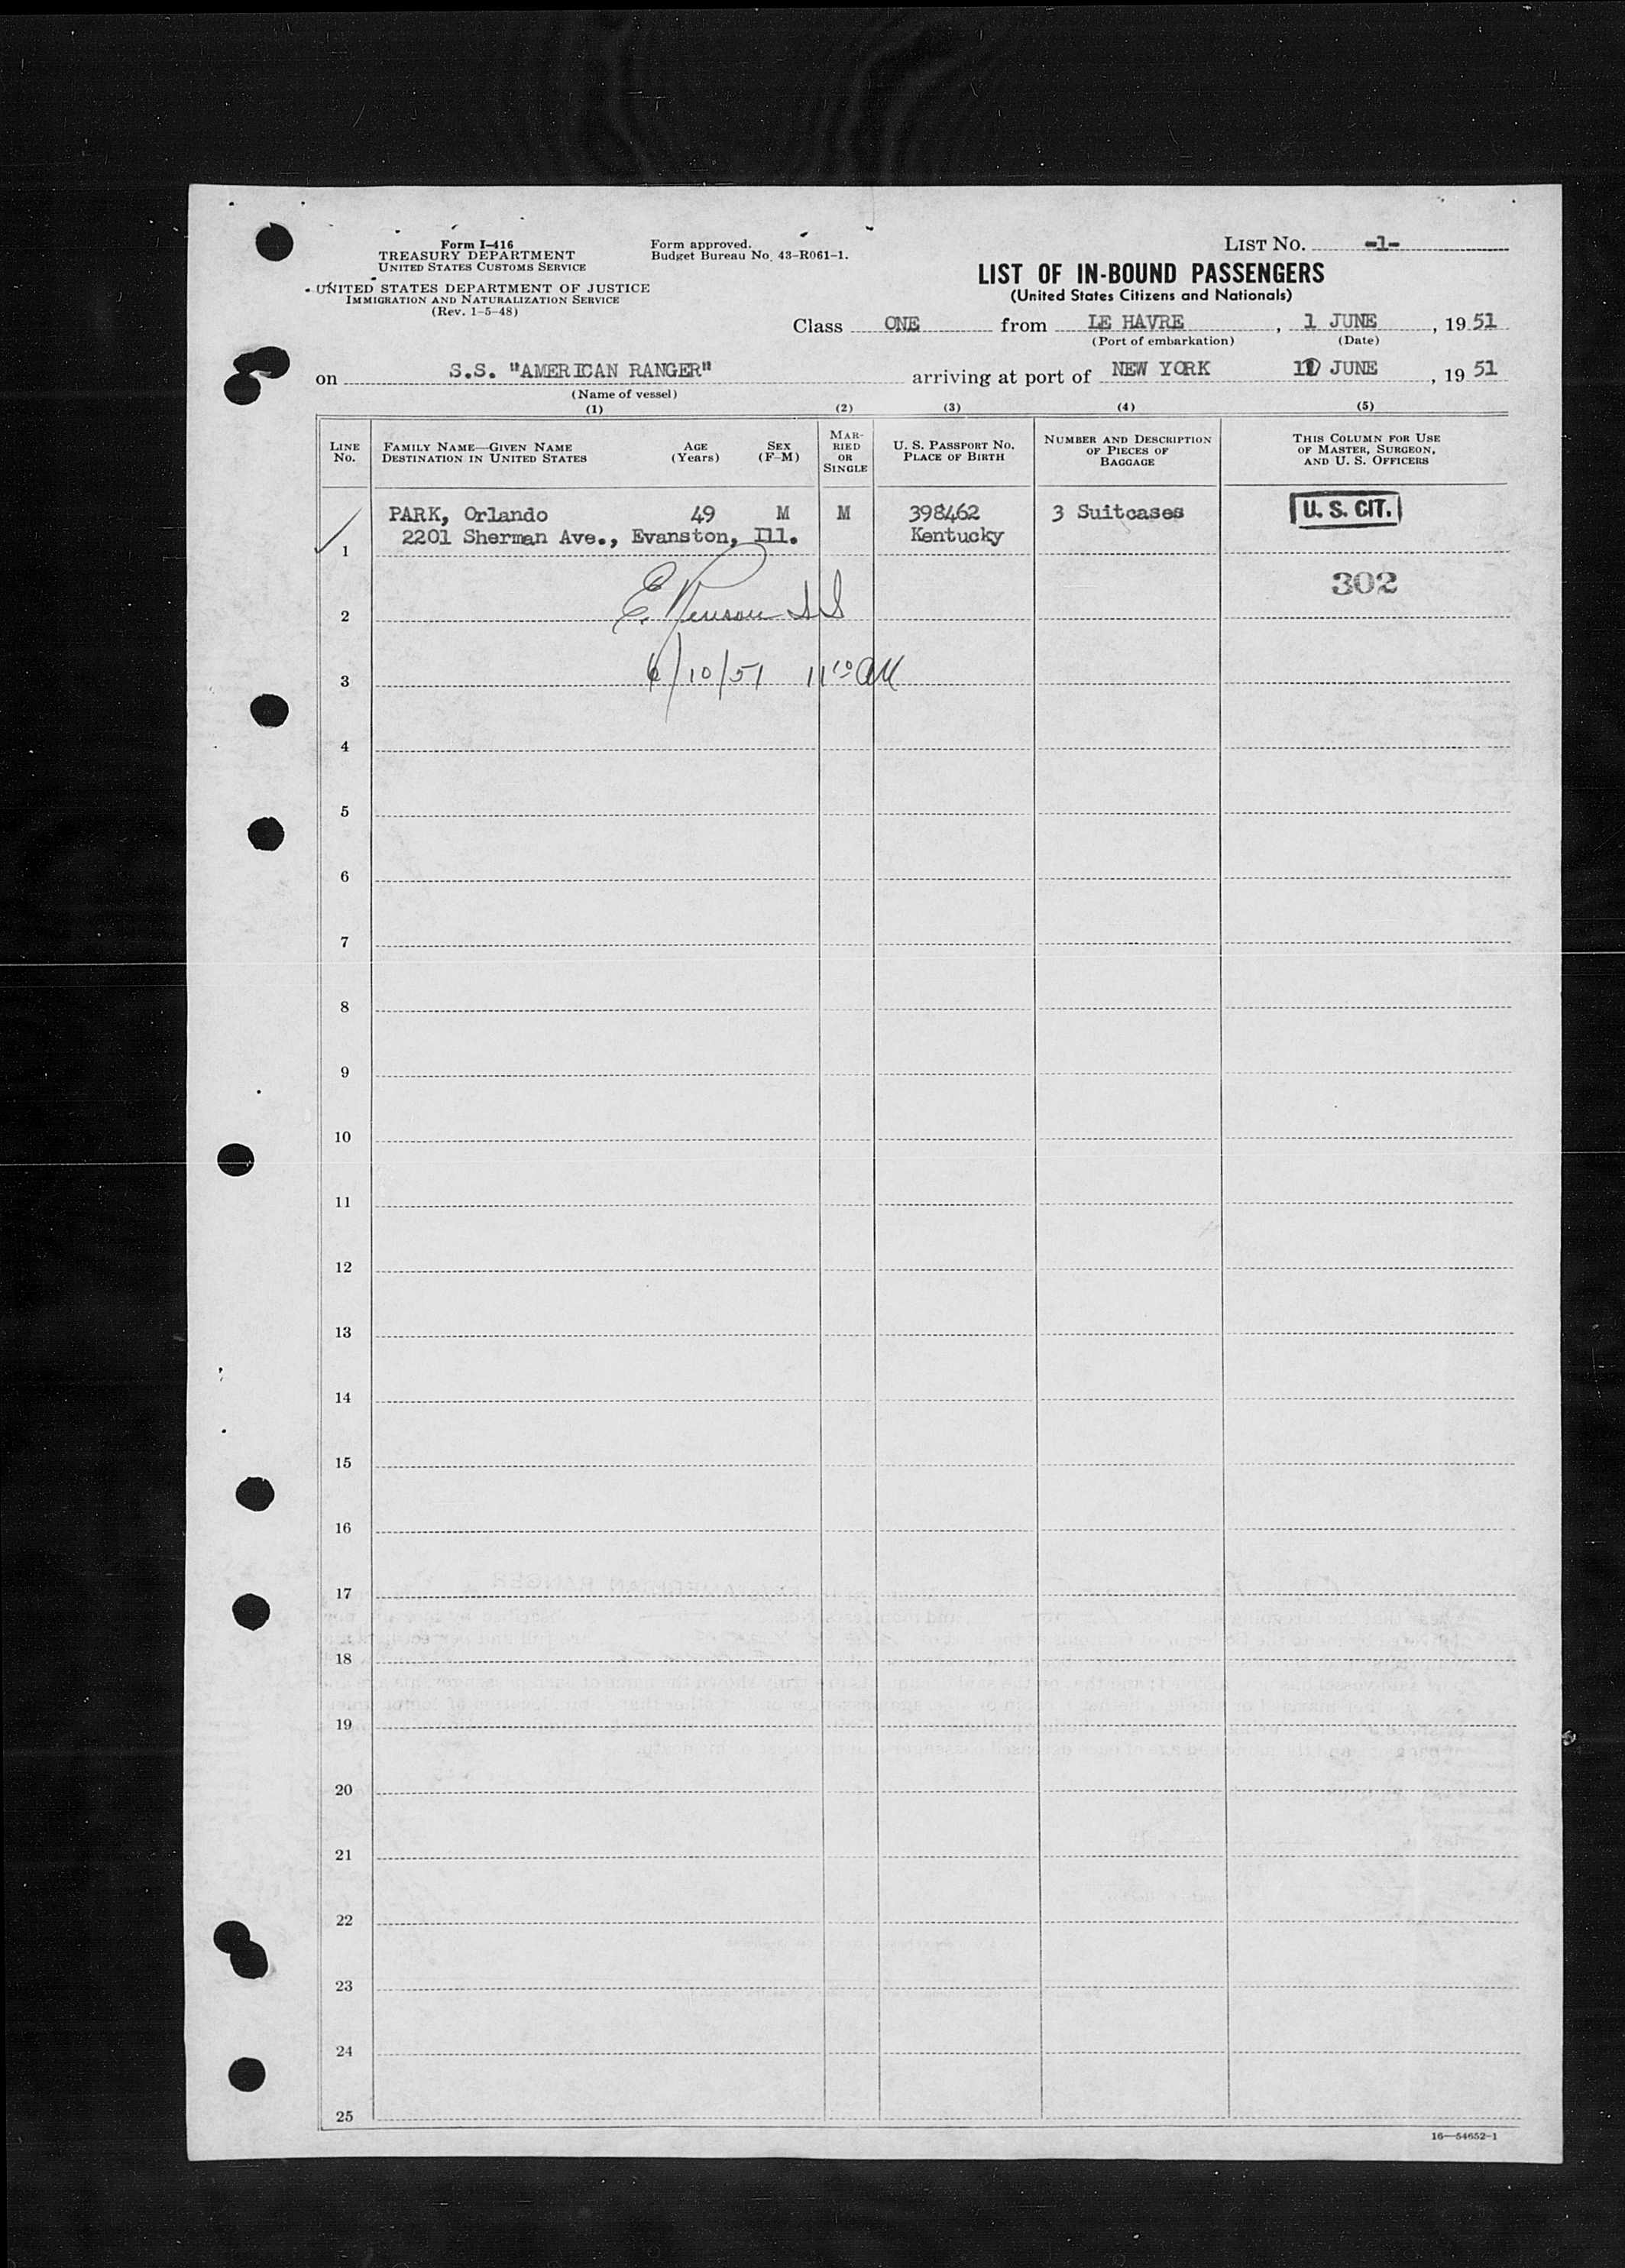 Form I-416
TREASURY DEPARTMENT
UNITED STATES CUSTOMS SERVICE
UNITED STATES DEPARTMENT OF JUSTICE
IMMIGRATION AND NATURALIZATION SERVICE
(Rev. 1-5-48)
Form approved.
Budget Bureau No. 43-R061-1.
LIST NO. -1-
LIST OF IN-BOUND PASSENGERS
(United States Citizens and Nationals)
Class ONE from LE HAVRE, 1 JUNE, 19 51
(Port of embarkation) (Date)
on S.S. "AMERICAN RANGER" arriving at port of NEW YORK JUNE, 19 51
(Name of vessel)
(1) (2) (3) (4) (5)
LINE No.
FAMILY NAME—GIVEN NAME
DESTINATION IN UNITED STATES
AGE
(Years)
SEX
(F-M)
MAR-
RIED
OR
SINGLE
U. S. PASSPORT NO.
PLACE OF BIRTH
NUMBER AND DESCRIPTION
OF PIECES OF
BAGGAGE
THIS COLUMN FOR USE
OF MASTER, SURGEON,
AND U. S. OFFICERS
PARK, Orlando 49 M M 398462 3 Suitcases U. S. CIT.
2201 Sherman Ave., Evanston, Ill. Kentucky
1
302
2
6/10/51 11 10 AM
3
4
5
6
7
8
9
10
11
12
13
14
15
16
17
18
19
20
21
22
23
24
25
16—54652-1